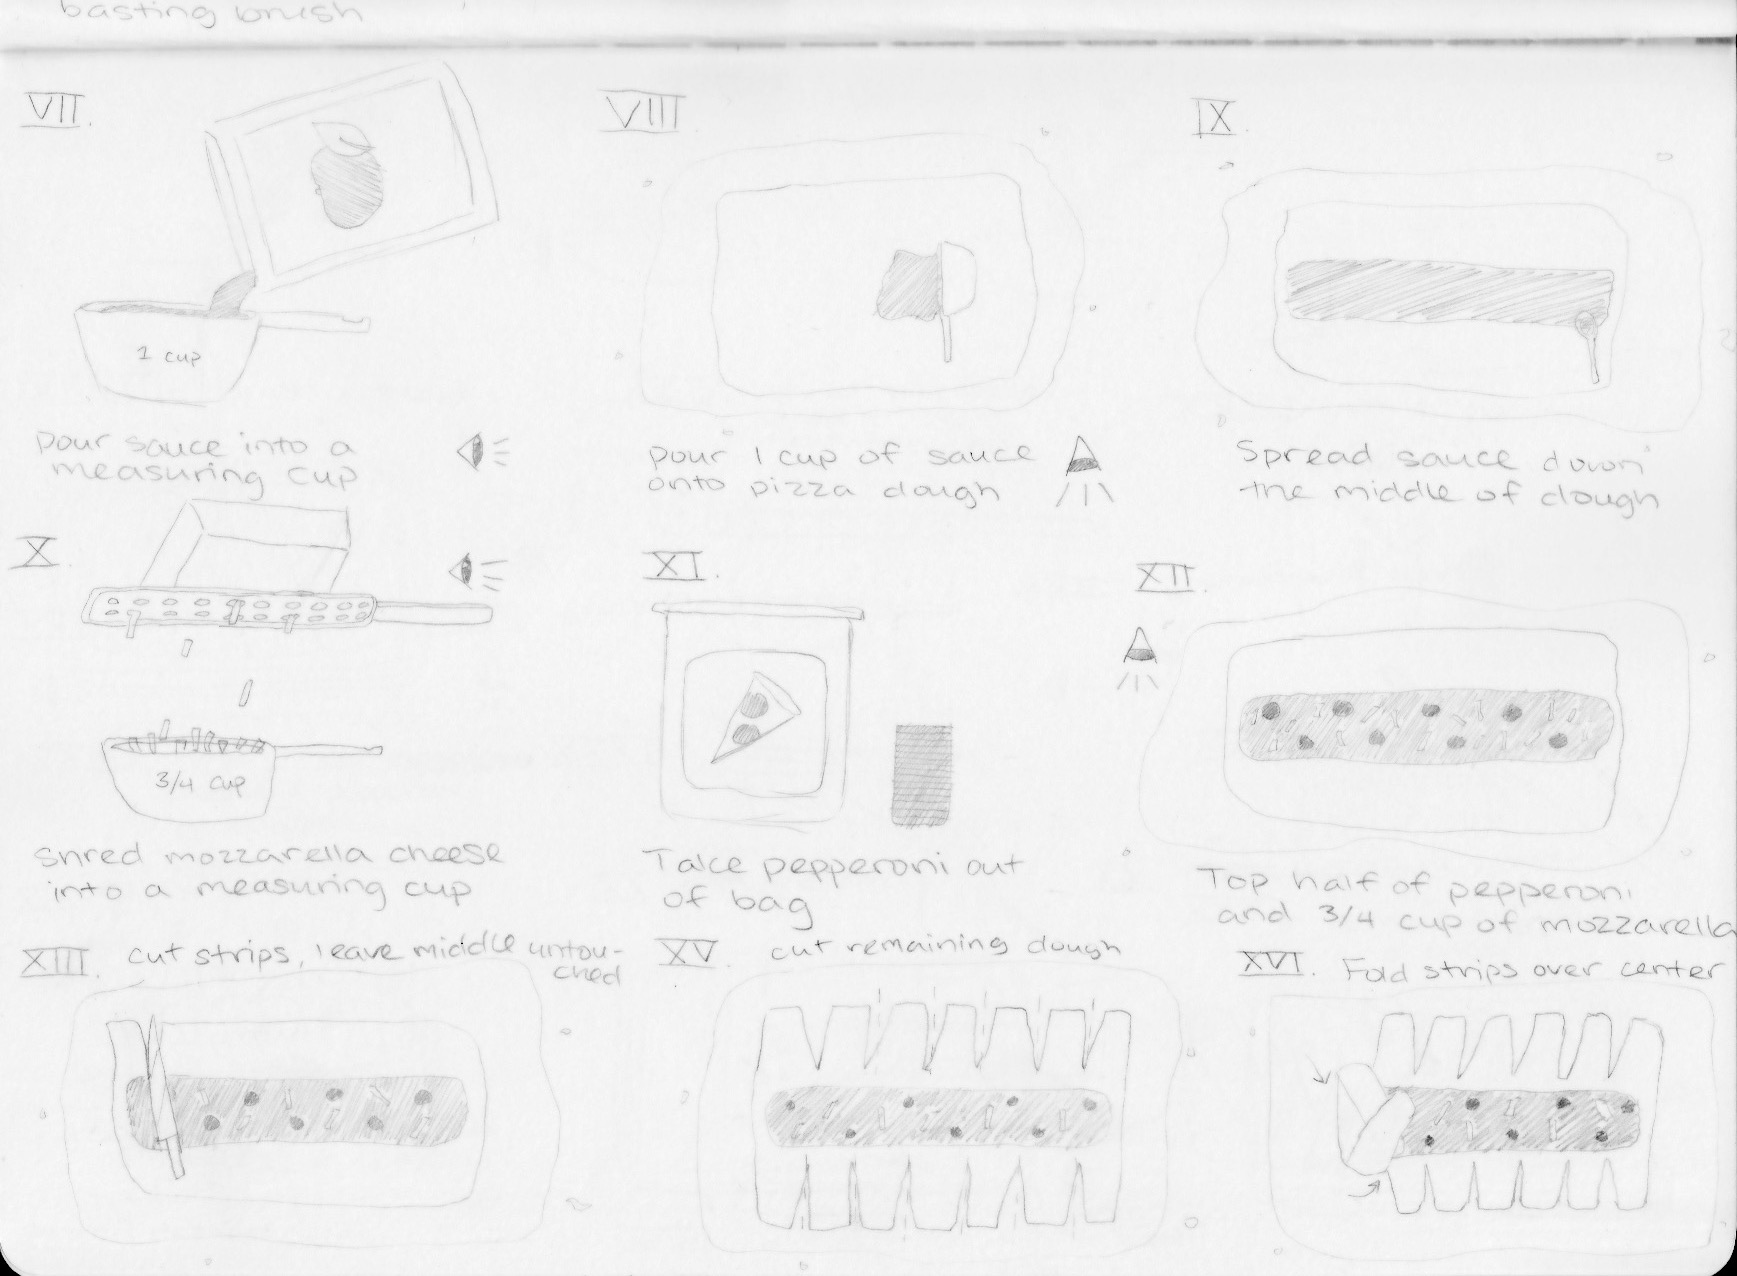 basting brush
VII.
VIII
IX.
1 cup
pour sauce into a
measuring cup
pour 1 cup of sauce
onto pizza dough
Spread sauce down
the middle of dough
X.
XI.
XII.
3/4 cup
Shred mozzarella cheese
into a measuring cup
Take pepperoni out
of bag
Top half of pepperoni
and 3/4 cup of mozzarella
XIII. cut strips, leave middle untou-
ched
XV. cut remaining dough
XVI. Fold strips over center